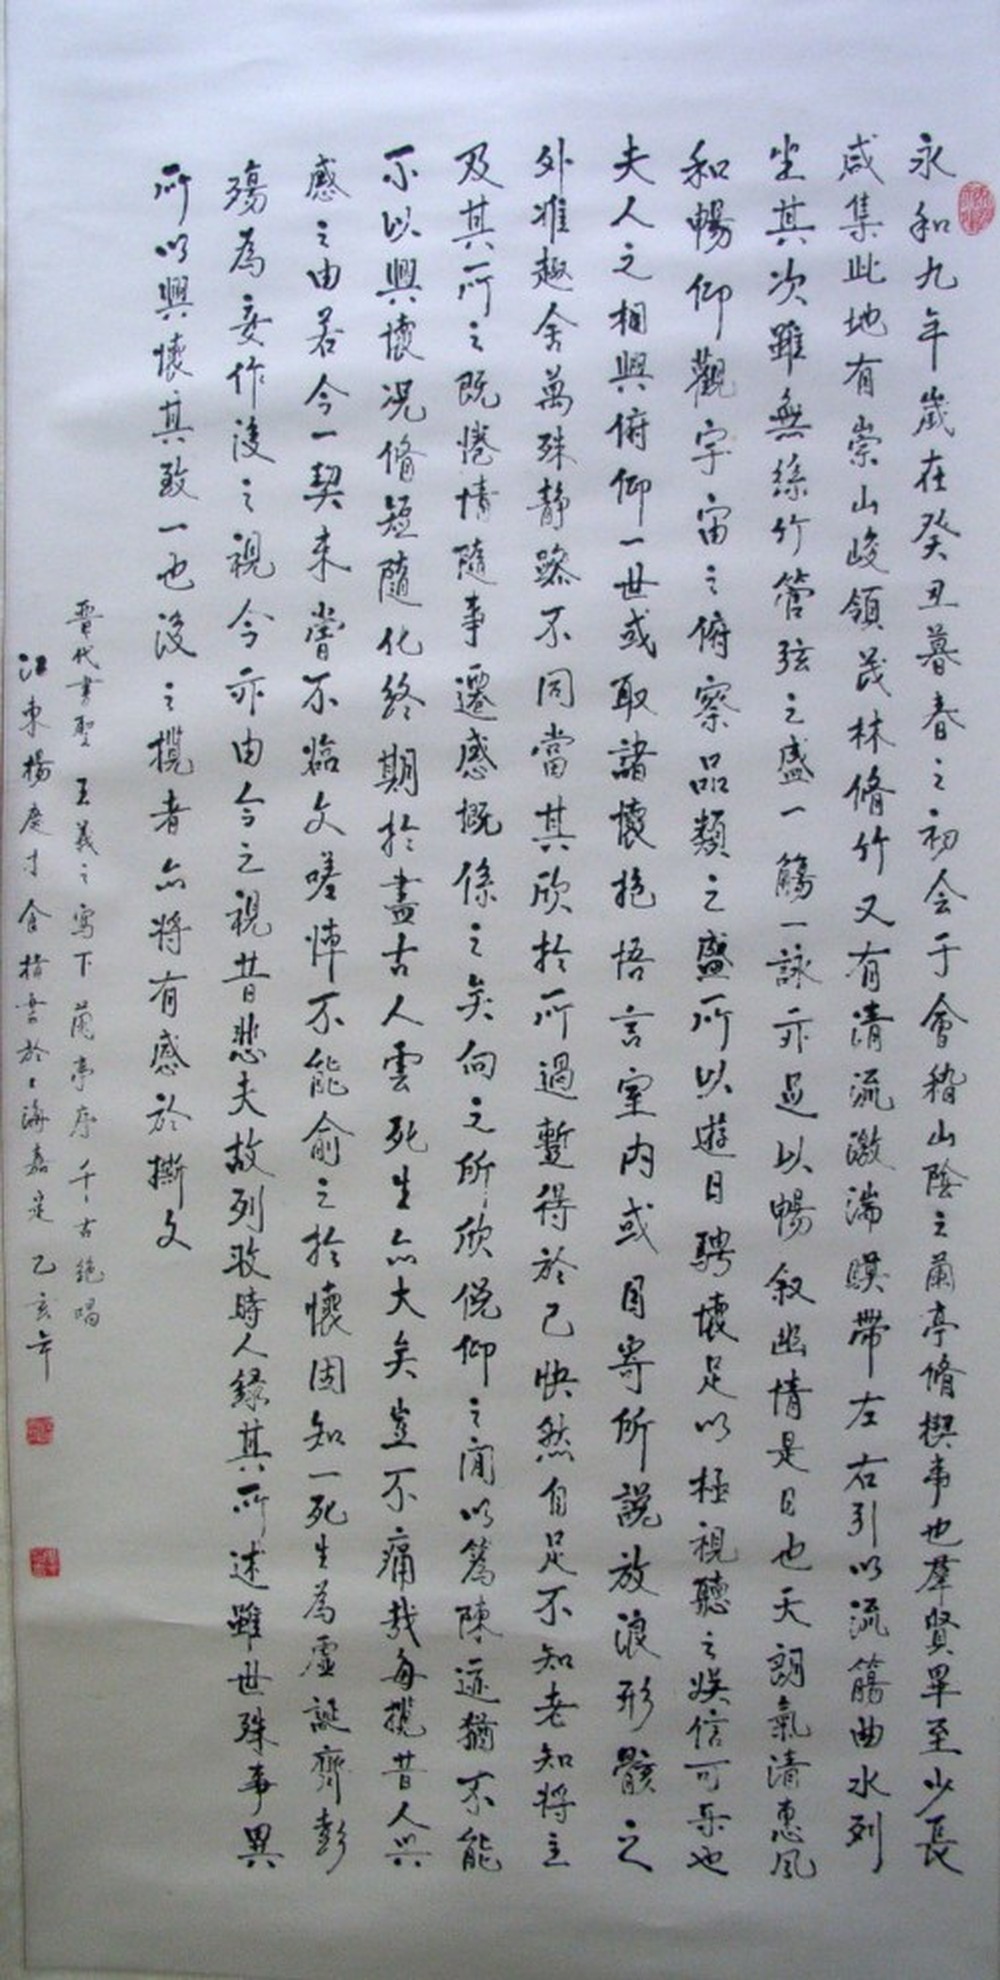 永和九年歲在癸丑暮春之初会于會稽山陰之蘭亭脩禊事也羣賢畢至少長
咸集此地有崇山峻領茂林脩竹又有清流激湍暎帶左右引以流觴曲水列
坐其次雖無絲竹管弦之盛一觴一詠亦足以暢叙幽情是日也天朗氣清惠風
和暢仰觀宇宙之俯察品類之盛所以遊目騁懷足以極視聽之娱信可樂也
夫人之相與俯仰一世或取諸懷抱悟言室内或因寄所說放浪形骸之
外雖趣舍萬殊静躁不同當其欣於所過蹔得於己快然自足不知老知將至
及其所之既惓情隨事遷感慨係之矣向之所欣俛仰之間以篤陳迹猶不能
不以興懷况脩短隨化終期於盡古人雲死生亦大矣豈不痛哉每攬昔人興
感之由若今一契未嘗不臨文嗟悼不能喻之於懷固知一死生為虛誕齊彭
殤為妄作後之視今亦由今之視昔悲夫故列敘時人錄其所述雖世殊事異
所以興懷其致一也後之攬者亦將有感於斯文
晋代書聖 王羲之寫下蘭亭序千古絶唱
江東楊慶才食指書於上海嘉定乙亥年